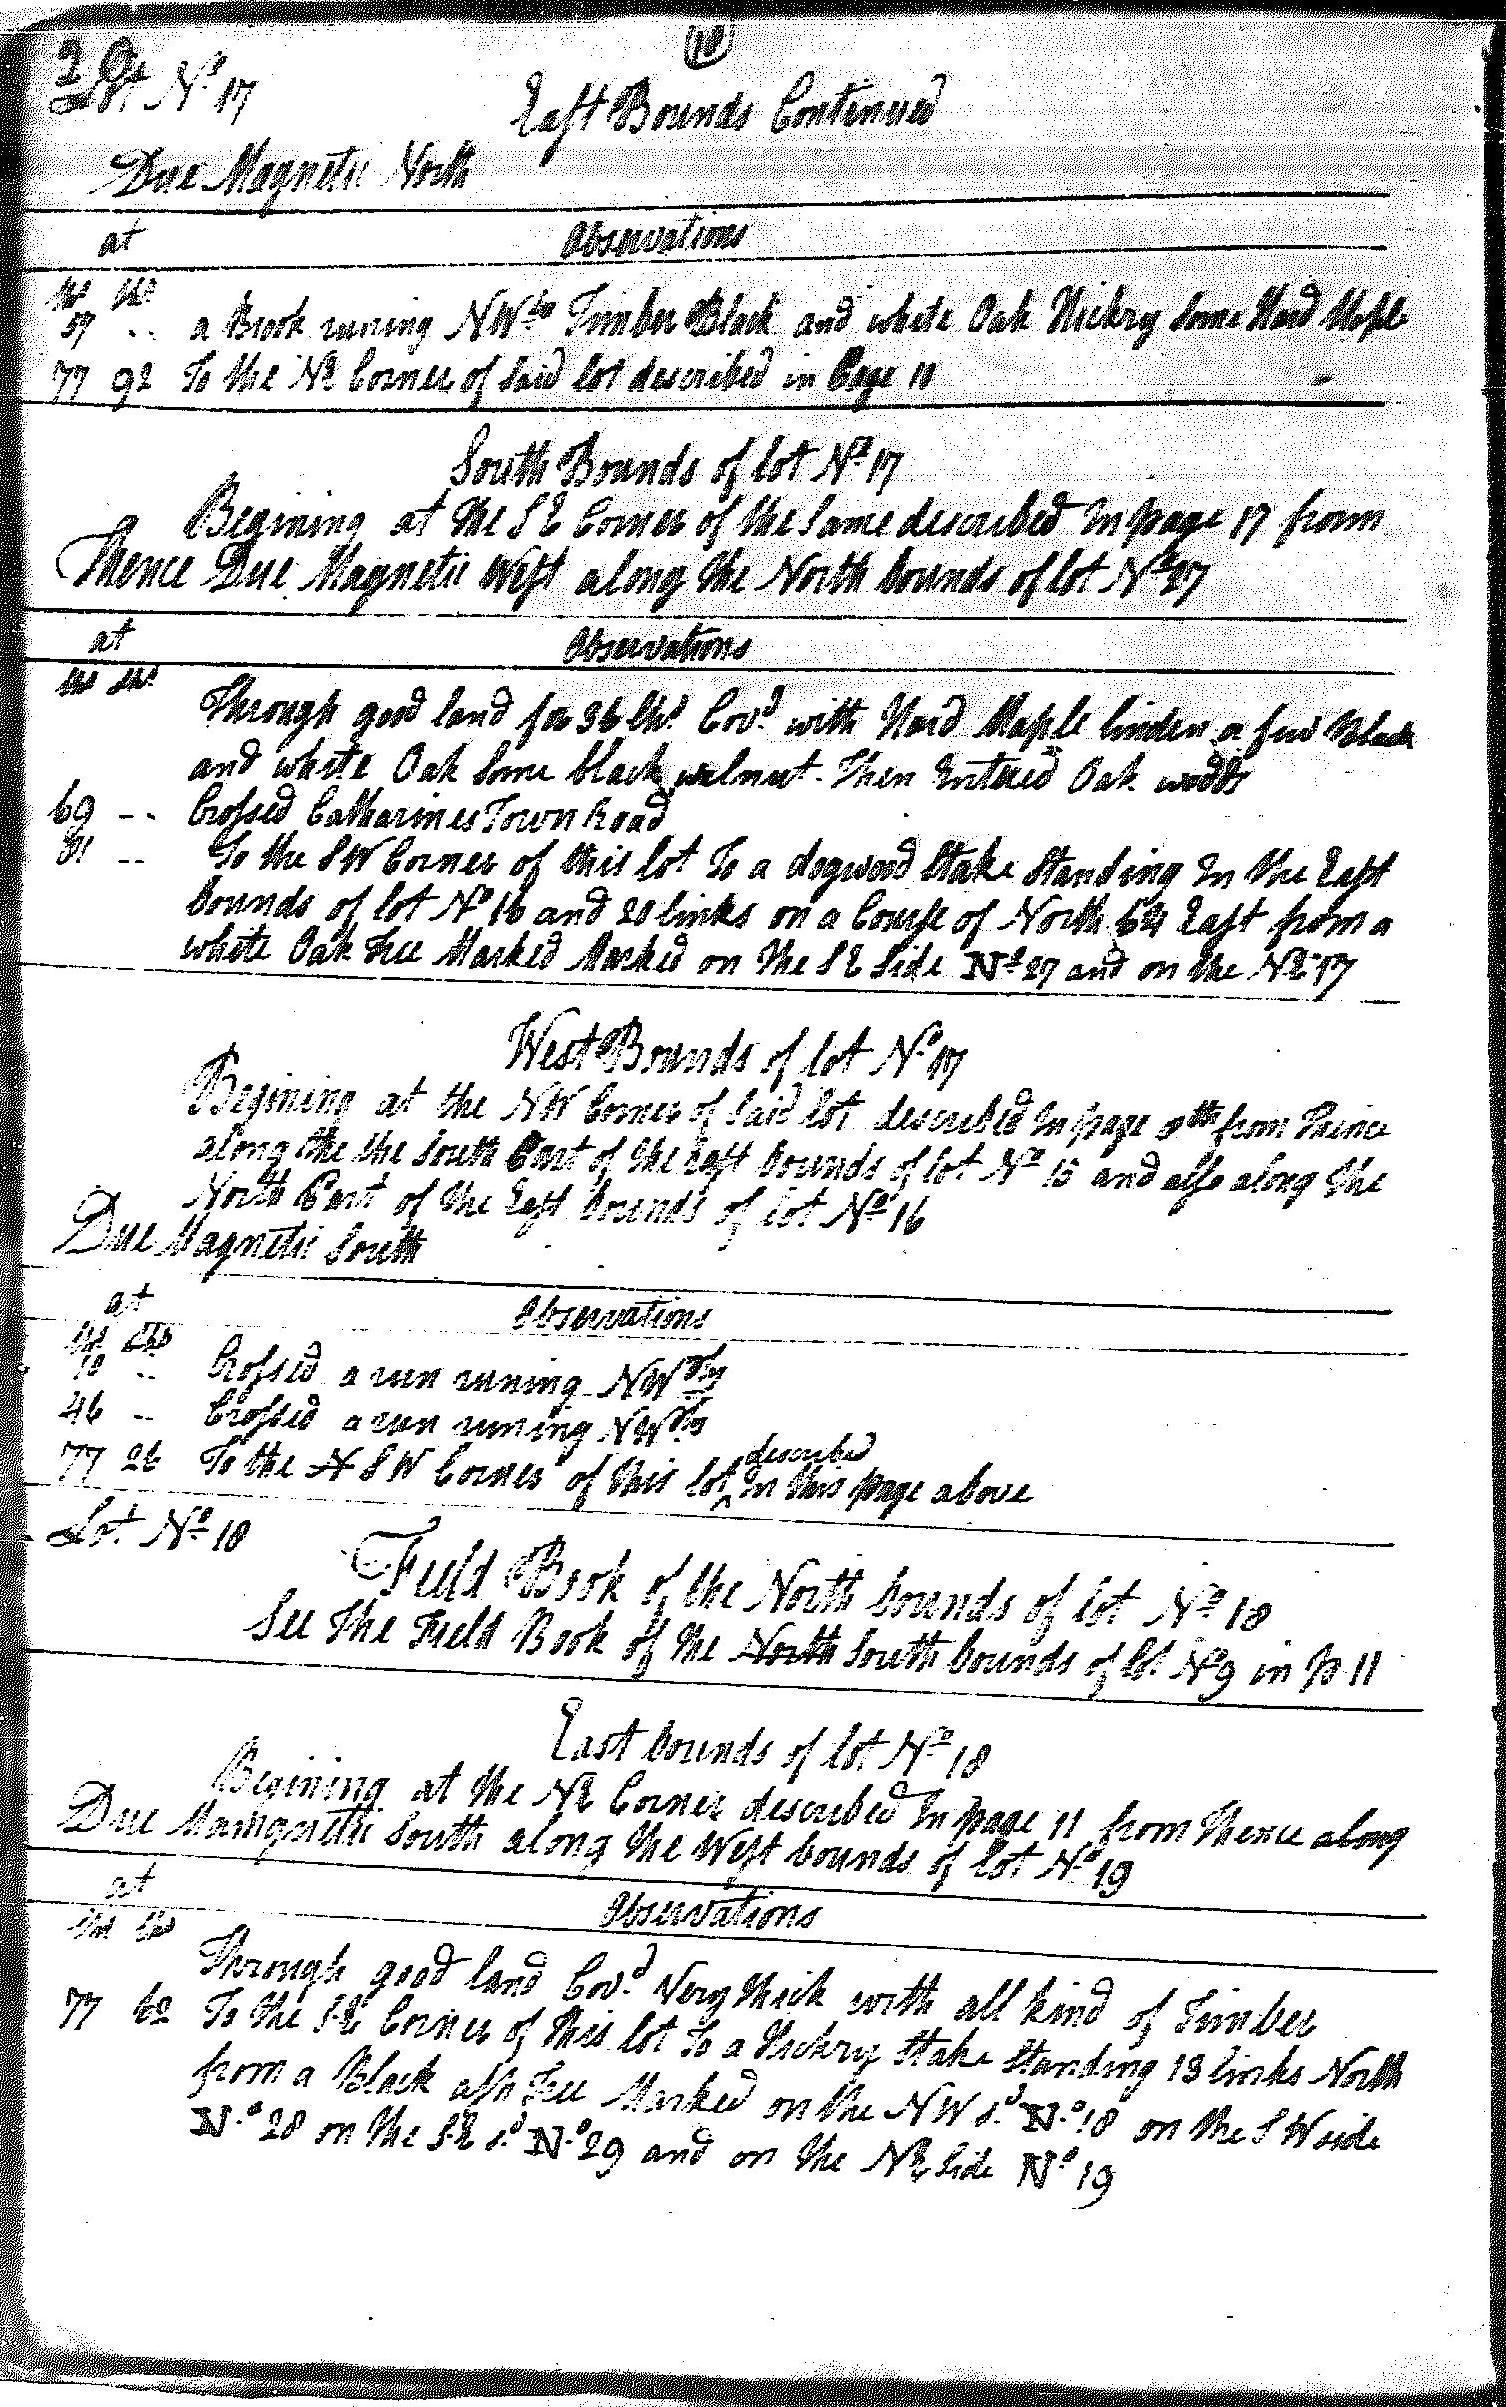 18
Lot No 17
East Bounds Continued
Due Magnetic North
at Observations
Chs Lks
57 -- a Brook runing NWto Timber Black and white Oak Hickry Some Hard Maple
77 92 To the NE Corner of Said lot described in Page 10
South Bounds of lot No 17
Begining at the SE Corner of the Same described In page 17 from
Thence Due Magnetic West along the North bounds of lot No 27
at Observations
Chs Lks
Through good land for 36 Chs Covd with Hard Maple linden a few Black
and white Oak Some black walnut. Then Entered Oak woods
69 -- Crossed Catharines Town Road
81 -- To the SW Corner of this lot To a dogwood Stake Standing In the East
bounds of lot No 16 and 20 links on a Course of North 64 East from a
white Oak Tree Marked Marked on the SE Side No 27 and on the NE 17
West Bounds of lot No 17
Begining at the NW Corner of Said lot described In page from Thence
along the the South Part of the East bounds of lot No 15 and also along the
North Part of the East bounds of lot No 16
Due Magnetic South
at Observations
Chs Lks
18 -- Crossed a run runing NWrly
46 -- Crossed a run runing NWrly
77 26 To the N SW Corner of this lot described In this page above
Lot No 18
Field Book of the North bounds of lot No 18
See The Field Book of the North South bounds of lot No 9 in p 11
East bounds of lot No 18
Begining at the NE Corner described In page 11 from Thence along
Due Mamgnetic South along the West bounds of lot No 19
at Observations
Chs Lks
Through good land Covd Very thick with all kind of Timber
77 62 To the SE Corner of this lot To a Hickry Stake Standing 13 links North
from a Black ash Tree Marked on the NW sd No 18 on the SW side
No 28 on the SE sd No 29 and on the NE Side No 19